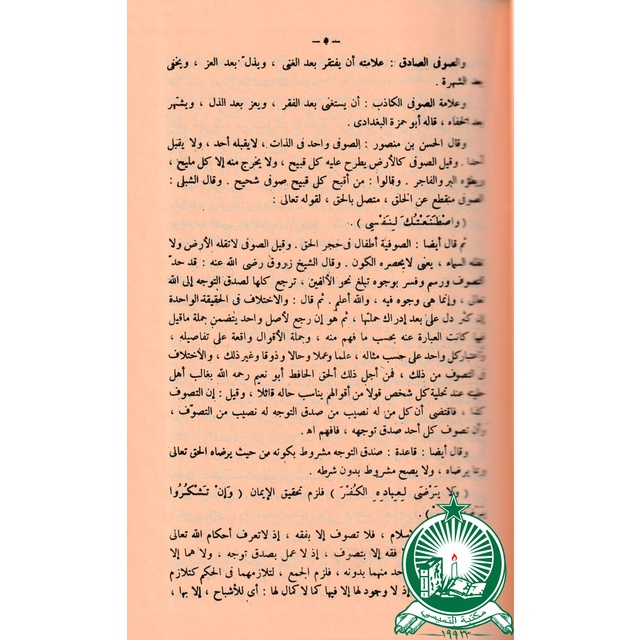 — ٥ —
والصوفى الصادق : علامته أن يفتقر بعد الغنى ، ويذل بعد العز ، ويخفى
بعد الشهرة .
وعلامة الصوفى الكاذب : أن يستغنى بعد الفقر ، ويعز بعد الذل ، ويشتهر
بعد الخفاء ، قاله أبو حمزة البغدادى .
وقال الحسن بن منصور : الصوفى واحد فى الذات ، لايقبله أحد ، ولا يقبل
أحدا . وقيل الصوفى كالأرض يطرح عليه كل قبيح ، ولا يخرج منه إلا كل مليح ،
ويطؤه البر والفاجر . وقالوا : من أقبح كل قبيح صوفى شحيح . وقال الشبلى :
الصوفى منقطع عن الخلق ، متصل بالحق ، لقوله تعالى :
( واصْطَنَعْتُكَ لِنَفْسِى ) .
ثم قال أيضا : الصوفية أطفال فى حجر الحق . وقيل الصوفى لاتقله الأرض ولا
تظله السماء ، يعنى لايحصره الكون . وقال الشيخ زروق رضى الله عنه : قد حدّ
التصوف ورسم وفسر بوجوه تبلغ نحو الألفين ، ترجع كلها لصدق التوجه إلى الله
تعالى ، وإنما هى وجوه فيه ، والله أعلم . ثم قال : والاختلاف فى الحقيقة الواحدة
إن كثر دل على بعد إدراك جملتها ، ثم هو إن رجع لأصل واحد يتضمن جملة ماقيل
فيها كانت العبارة عنه بحسب ما فهم منه ، وجملة الأقوال واقعة على تفاصيله ،
واعتبار كل واحد على حسب مثاله ، علما وعملا وحالا وذوقا وغير ذلك ، والاختلاف
فى التصوف من ذلك ، فمن أجل ذلك ألحق الحافظ أبو نعيم رحمه الله بغالب أهل
حليته عند تحلية كل شخص قولا من أقوالهم يناسب حاله قائلا ، وقيل : إن التصوف
كذا ، فاقتضى أن كل من له نصيب من صدق التوجه له نصيب من التصوّف ،
وأن تصوف كل أحد صدق توجهه ، فافهم اه .
وقال أيضا : قاعدة : صدق التوجه مشروط بكونه من حيث يرضاه الحق تعالى
وبما يرضاه ، ولا يصح مشروط بدون شرطه .
( وَلَا يَرْضَى لِعِبادِهِ الكُفْرَ ) فلزم تحقيق الإيمان ( وَإِنْ تَشْكُرُوا
سلام ، فلا تصوف إلا بفقه ، إذ لاتعرف أحكام الله تعالى
فقه إلا بتصوف ، إذ لا عمل بصدق توجه ، ولا هما إلا
حد منهما بدونه ، فلزم الجمع ، لتلازمهما فى الحكم كتلازم
إذ لا وجود لها إلا فيها كما لا كمال لها : أى للأشباح ، إلا بها ،
مكتبة القديمى
١٩٩٣